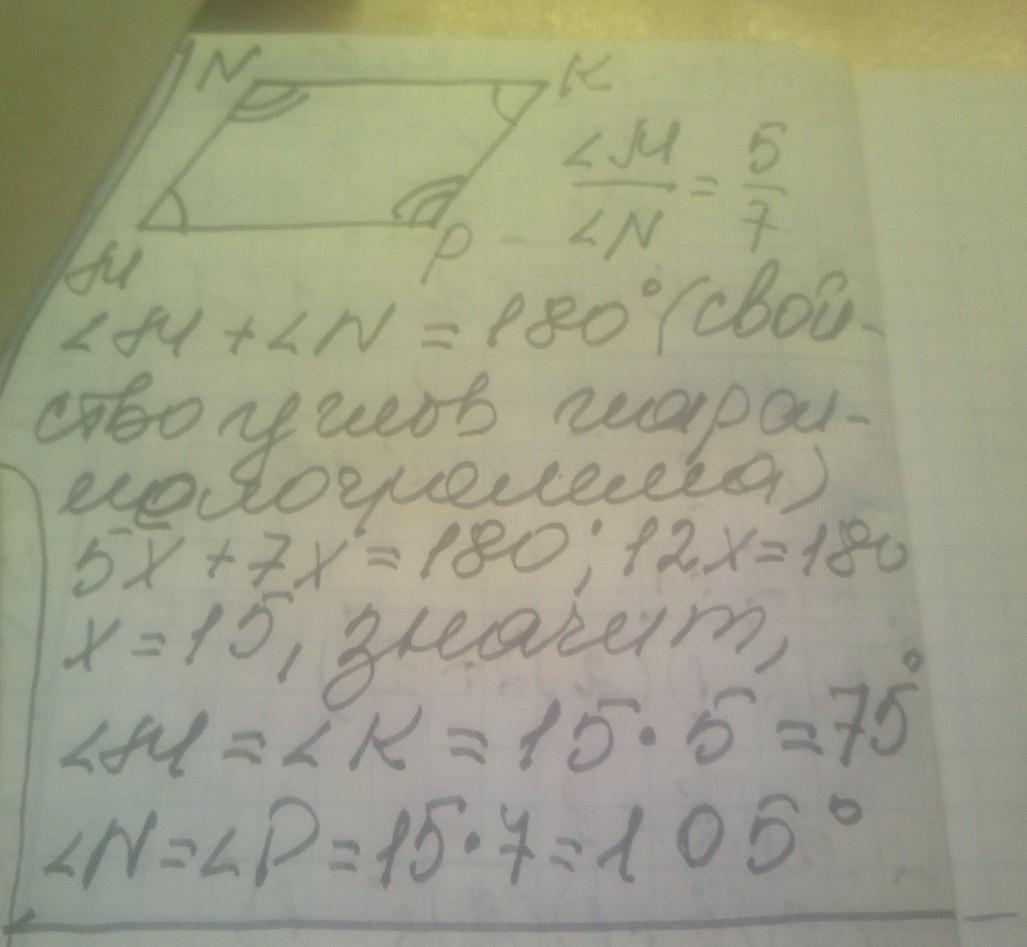 N K
∠M/∠N = 5/7
M P
∠M + ∠N = 180° (свой-
ство углов парал-
лелограмма)
5x + 7x = 180°; 12x = 180
x = 15, значит,
∠M = ∠K = 15 · 5 = 75°
∠N = ∠P = 15 · 7 = 105°